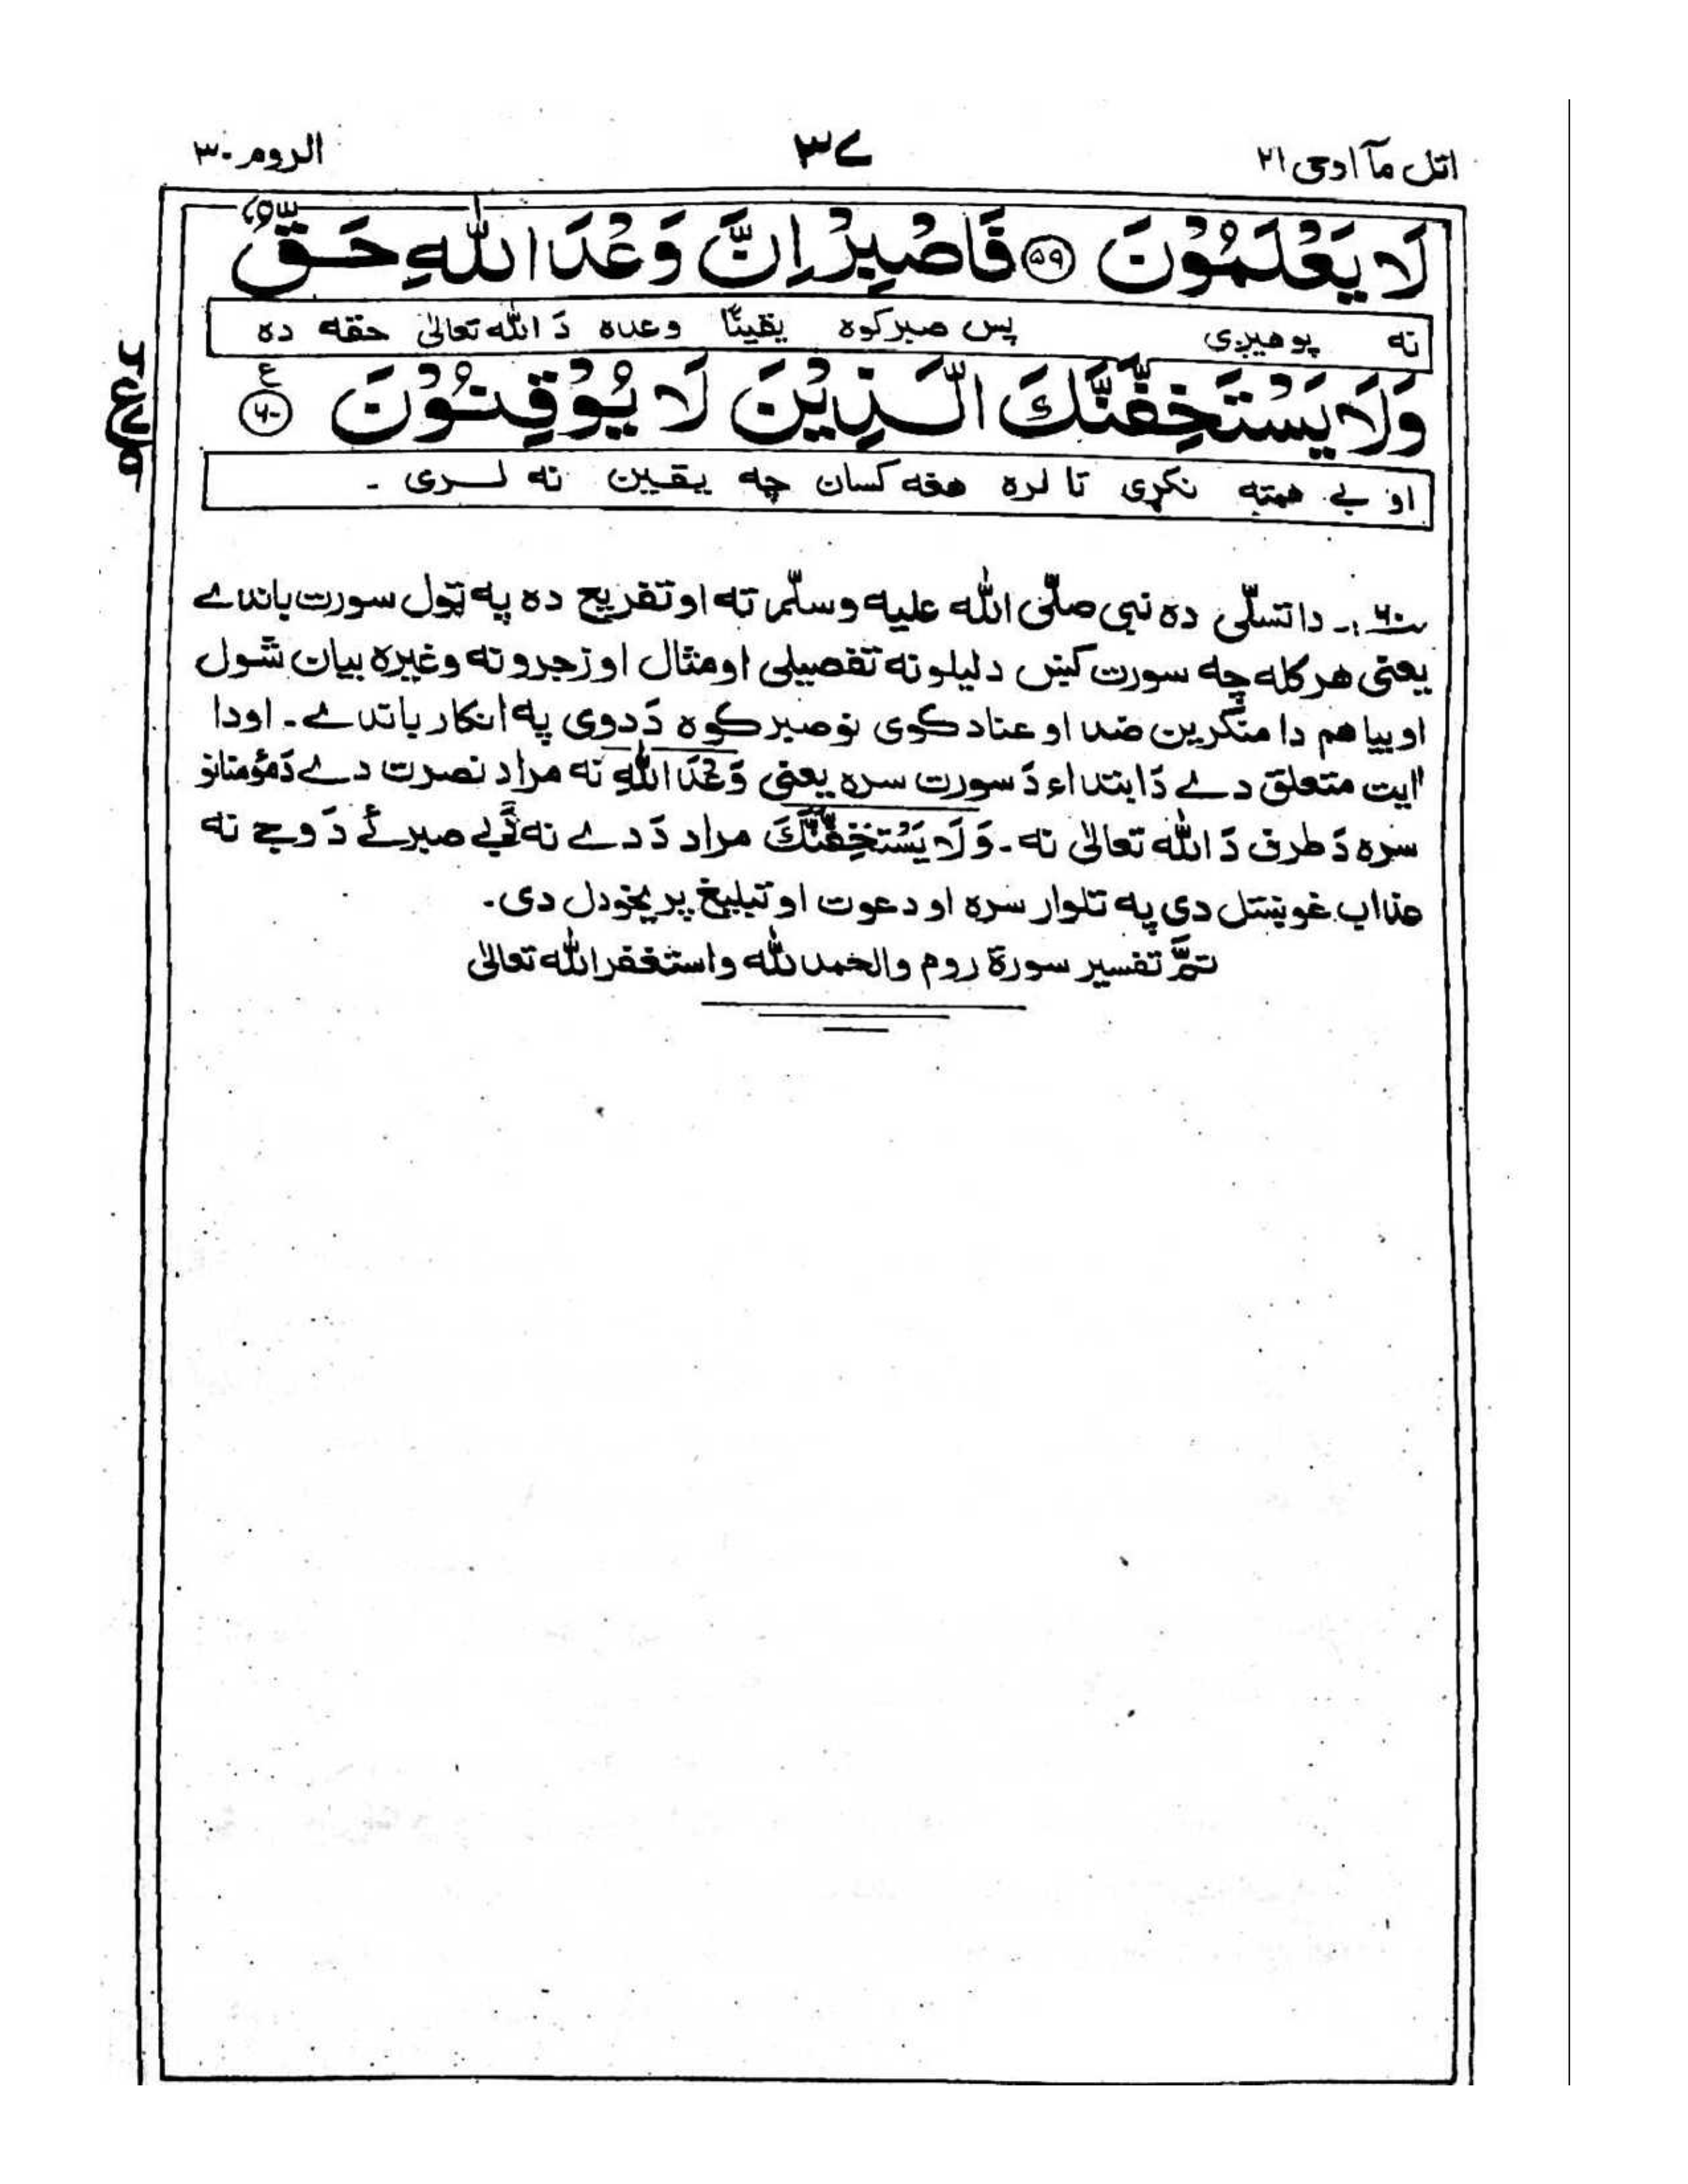 اتل مآ اوحی ۲۱
۳۷
الروم ۳۰
لَا يَعْلَمُوْنَ ﴿۵۹﴾ فَاصْبِرْ اِنَّ وَعْدَ اللّٰهِ حَقٌّ
نه پوهیږی پس صبر کوه یقینًا وعده دَ الله تعالیٰ حقه ده
وَّلَا يَسْتَخِفَّنَّكَ الَّذِيْنَ لَا يُوْقِنُوْنَ ﴿۶۰﴾ ع
او بې همته نکړی تا لره هغه کسان چه یقین نه لری ۔
۶۰:۔ دا تسلّی ده نبی صلّی الله علیه وسلّم ته او تفریح ده په ټول سورت باندے
یعنی هرکله چه سورت کښ دلیلونه تفصیلی او مثال او زجرونه وغیره بیان شول
او بیا هم دا منکرین ضد او عناد کوی نو صبر کوه دَ دوی په انکار باندے۔ او دا
ایت متعلق دے دَ ابتداء دَ سورت سره یعنی وَعْدَ اللّٰهِ نه مراد نصرت دے دَ مؤمنانو
سره دَ طرف دَ الله تعالیٰ نه۔ وَلَا يَسْتَخِفَّنَّكَ مراد دَ دے نه بې صبرئے دَ وجے نه
عذاب غوښتل دی په تلوار سره او دعوت او تبلیغ پریخودل دی۔
تمَّ تفسیر سورة روم والحمد لله واستغفر الله تعالیٰ